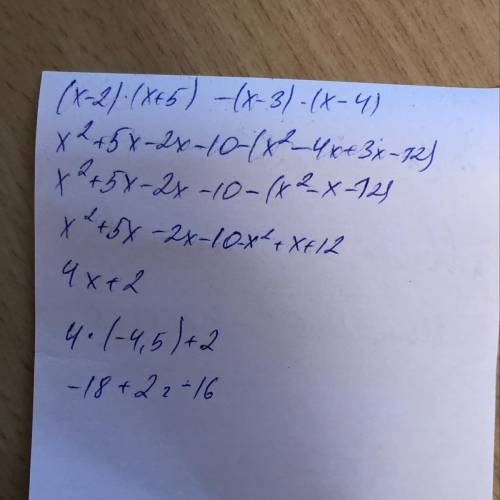 (x-2)·(x+5) -(x-3)·(x-4)
x²+5x-2x-10-(x²-4x+3x-12)
x²+5x-2x-10-(x²-x-12)
x²+5x-2x-10-x²+x+12
4x+2
4·(-4,5)+2
-18+2=-16